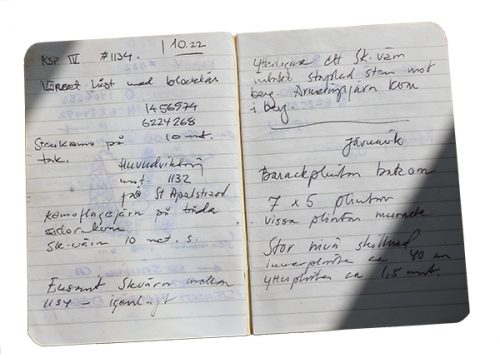 KSP IV #1134. | 10.22
Värnet låst med blocklås
1456974
6224268
Stenkamo på 10 met.
tak.
Huvudriktning
mot. 1132
på St Apelstrand
kamoflagejärn på båda
sidor kom
sk-värn 10 met. s.
Ensamt Skvärn mellan
1134 – igenlagt
Ytterligare ett Sk.värn
staplad sten mot
berg. Armeringsjärn kom
i berg.
Järnvik
Barackplinton bakom
7 x 5 plintar
vissa plintar murade
Stor nivå skillnad
innerplintar ca 40 cm
ytterplintar ca 1,5 met.